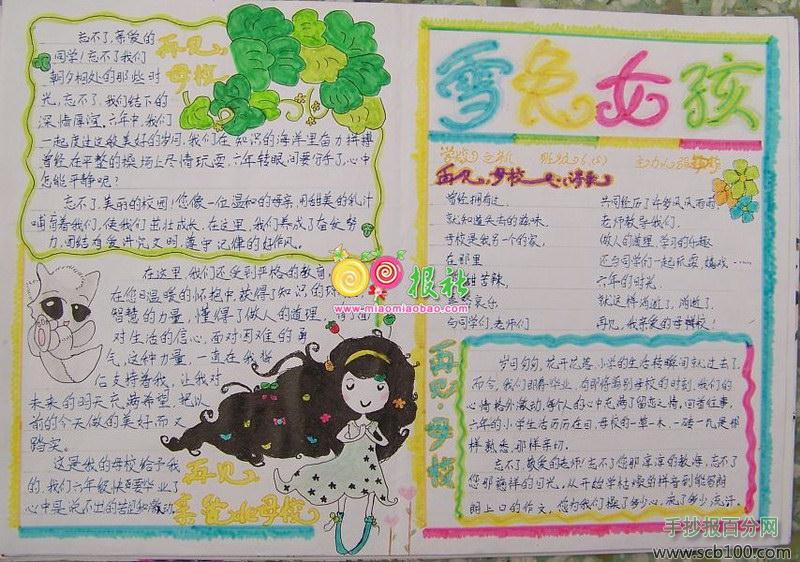 忘不了,亲爱的
同学!忘不了我们
朝夕相处的那些时
光,忘不了,我们结下的
深情厚谊。六年中,我们
一起度过这最美好的岁月,我们在知识的海洋里奋力拼搏
曾经在平整的操场上尽情玩耍,六年转眼间要分手了,心中
怎能平静呢?
忘不了,美丽的校园!您像一位温和的母亲,用甜美的乳汁
哺育着我们,使我们茁壮成长,在这里,我们养成了奋发努
力,团结友爱,讲究文明,遵守纪律的好作风。
再见,
母校
在这里,我们还受到严格的教育
在您温暖的怀抱中,获得了知识的
智慧的力量,懂得了做人的道理,
对生活的信心,面对困难的勇
气,这种力量,一直在我背
后支持着我,让我对
未来的明天充满希望,把以
前的今天做的美好而又
踏实。
这是我的母校给予我
的,我们六年级快要毕业了,
心中是说不出的苦涩和激动。
再见,
亲爱的母校
报社
www.miaomiaobao.com
雪兔女孩
再见,母校
曾经拥有过,
就知道失去的滋味,
母校是我另一个的家,
在那里
甜苦辣,
哀乐
与同学们,老师们
共同经历了年岁风风雨雨
老师教导我们,
做人的道理,学习的乐趣
还与同学们一起玩耍,嬉戏……
六年的时光,
就这样消逝了,消逝了,
再见,我亲爱的母校!
再见·母校
岁月匆匆,花开花落,小学的生活转瞬间就过去了,
而今,我们即将毕业,有即将离别母校的时刻,我们的
心情格外激动,每个人的心中充满了留恋之情,回首往事,
六年的小学生活历历在目,母校的一草一木,一砖一瓦是那
样熟悉,那样亲切。
忘不了,敬爱的老师!忘不了您那谆谆的教诲,忘不了
您那慈祥的目光,从开始学枯燥的拼音到能够朗
朗上口的作文,您为我们操了多少心,流了多少汗。
手抄报百分网
www.scb100.com